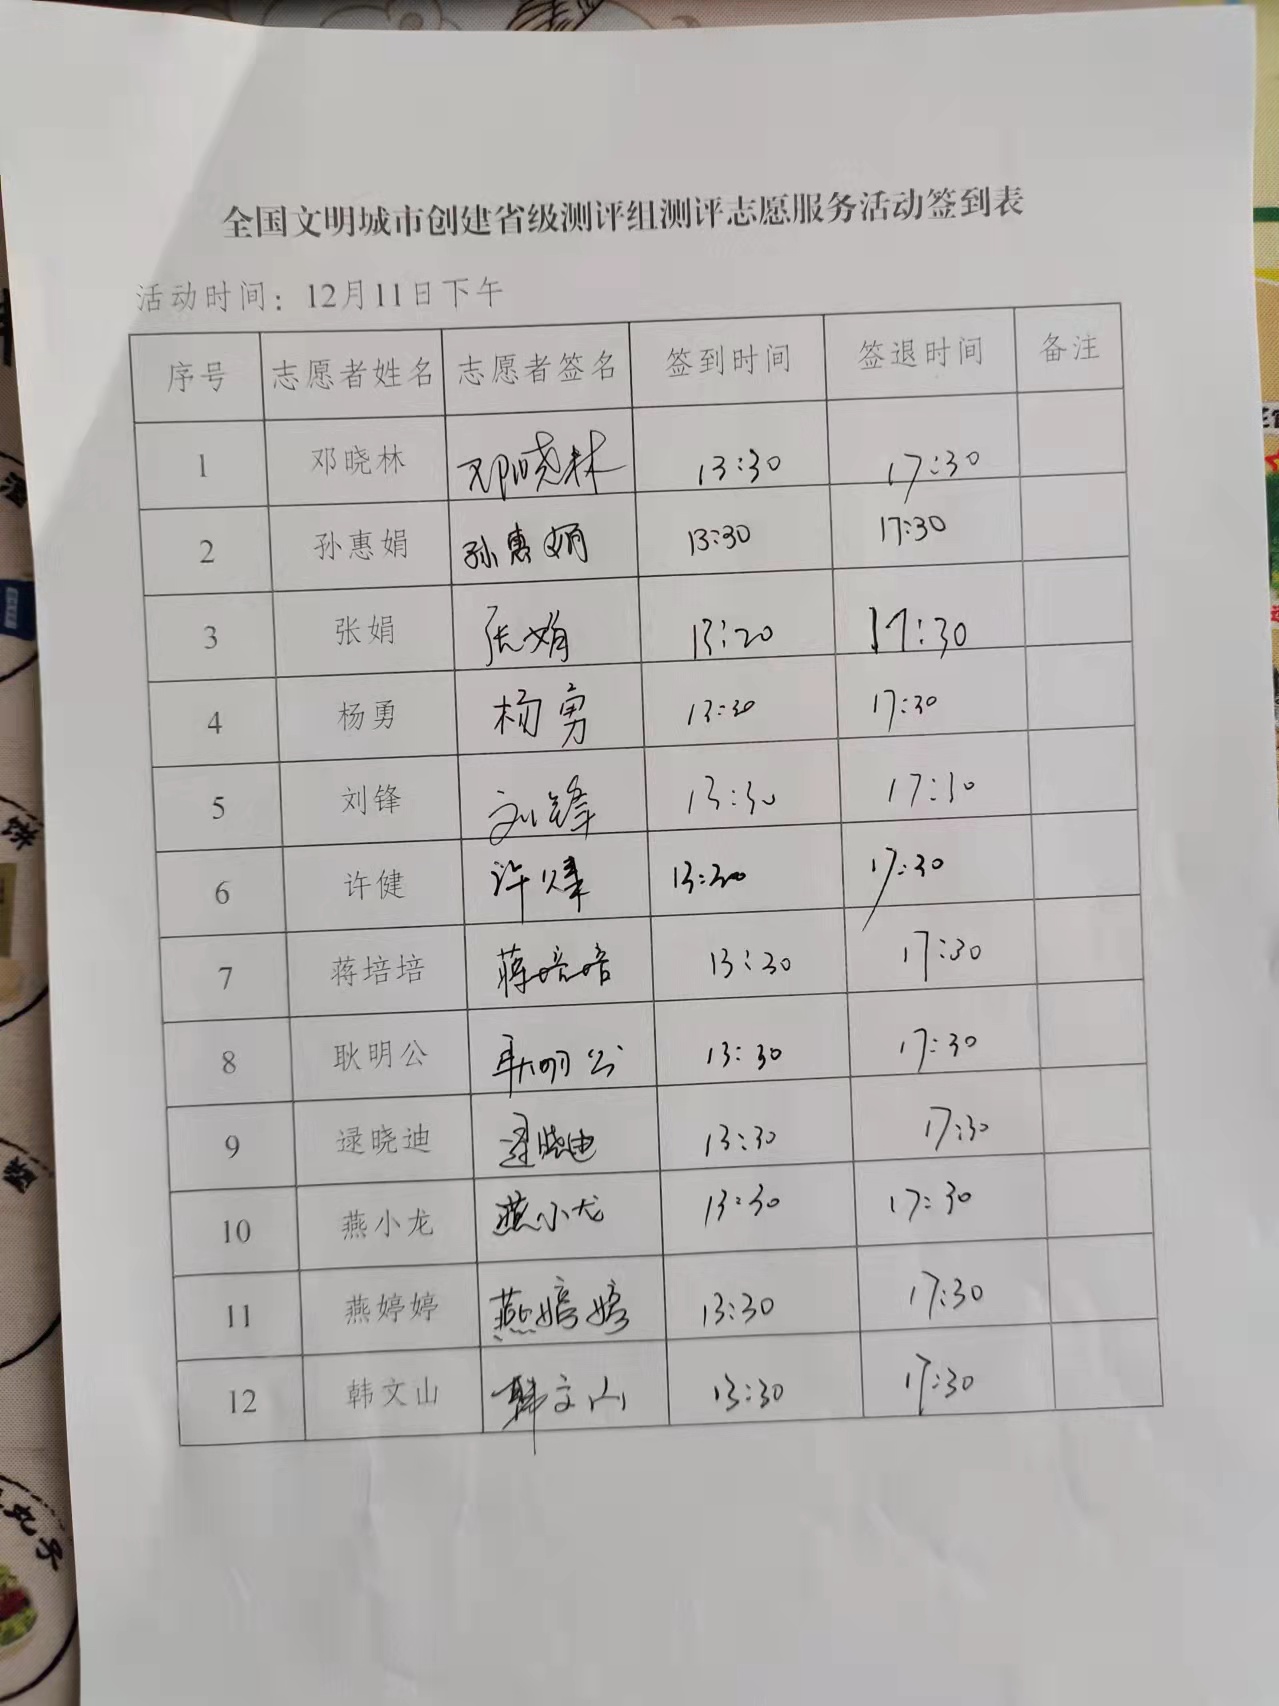 全国文明城市创建省级测评组测评志愿服务活动签到表
活动时间：12月11日下午
序号 志愿者姓名 志愿者签名 签到时间 签退时间 备注
1 邓晓林 邓晓林 13:30 17:30
2 孙惠娟 孙惠娟 13:30 17:30
3 张娟 张娟 13:20 17:30
4 杨勇 杨勇 13:30 17:30
5 刘锋 刘锋 13:30 17:30
6 许健 许健 13:30 17:30
7 蒋培培 蒋培培 13:30 17:30
8 耿明公 耿明公 13:30 17:30
9 逯晓迪 逯晓迪 13:30 17:30
10 燕小龙 燕小龙 13:30 17:30
11 燕婷婷 燕婷婷 13:30 17:30
12 韩文山 韩文山 13:30 17:30
丸子